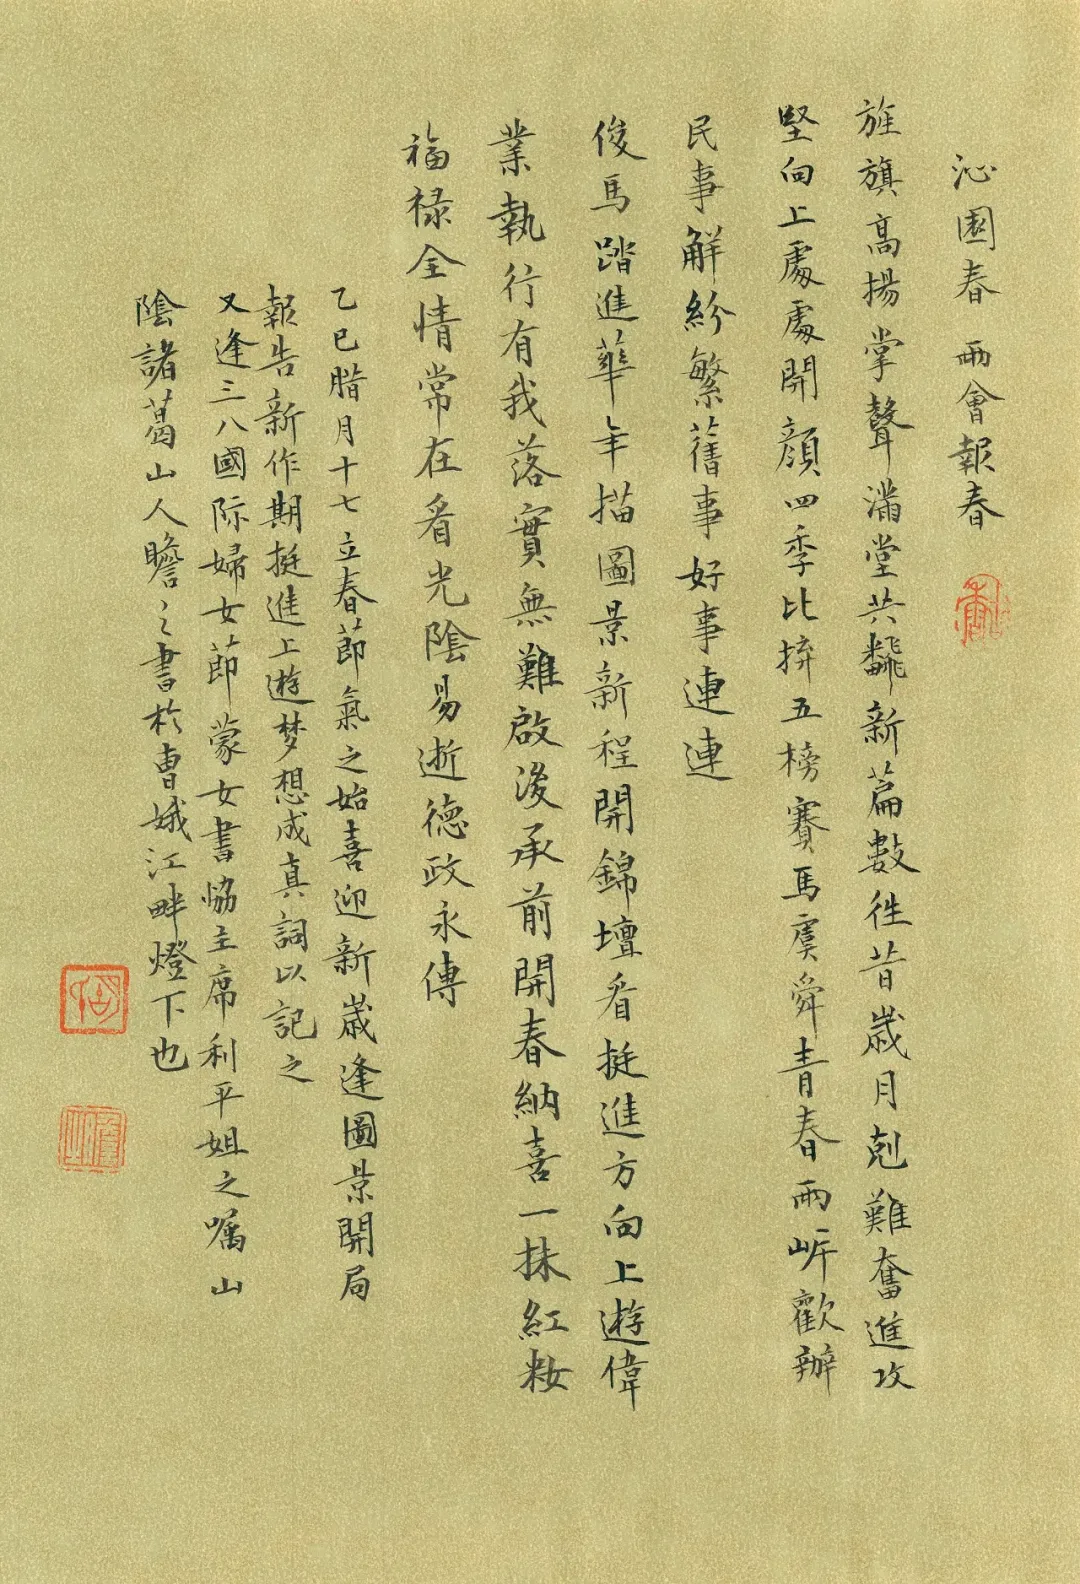 沁園春 兩會報春
旌旗高揚掌聲滿堂共飜新篇數徃昔歲月剋難奮進攻
堅向上處處開顔四季比拚五榜賽馬虞舜青春兩岸歡辦
民事解紛繁舊事好事連連
俊馬踏進華年描圖景新程開錦壇看挺進方向上遊偉
業執行有我落實無難啟後承前開春納喜一抹紅妝
福禄全情常在看光陰易逝德政永傳
乙巳腊月十七立春節氣之始喜迎新歲逢圖景開局
報告新作期挺進上遊梦想成真詞以記之
又逢三八國际婦女節蒙女書協主席利平姐之嘱山
陰諸葛山人瞻之書於曹娥江畔燈下也